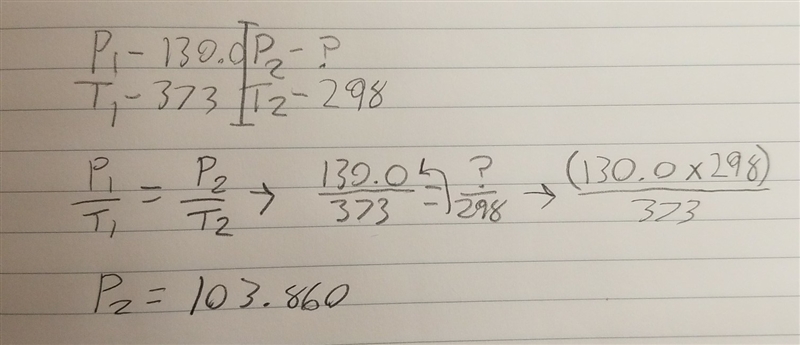 P₁ - 130.0 | P₂ - ?
T₁ - 373 | T₂ - 298
P₁/T₁ = P₂/T₂ → 130.0/373 = ?/298 → (130.0 x 298)/373
P₂ = 103.860